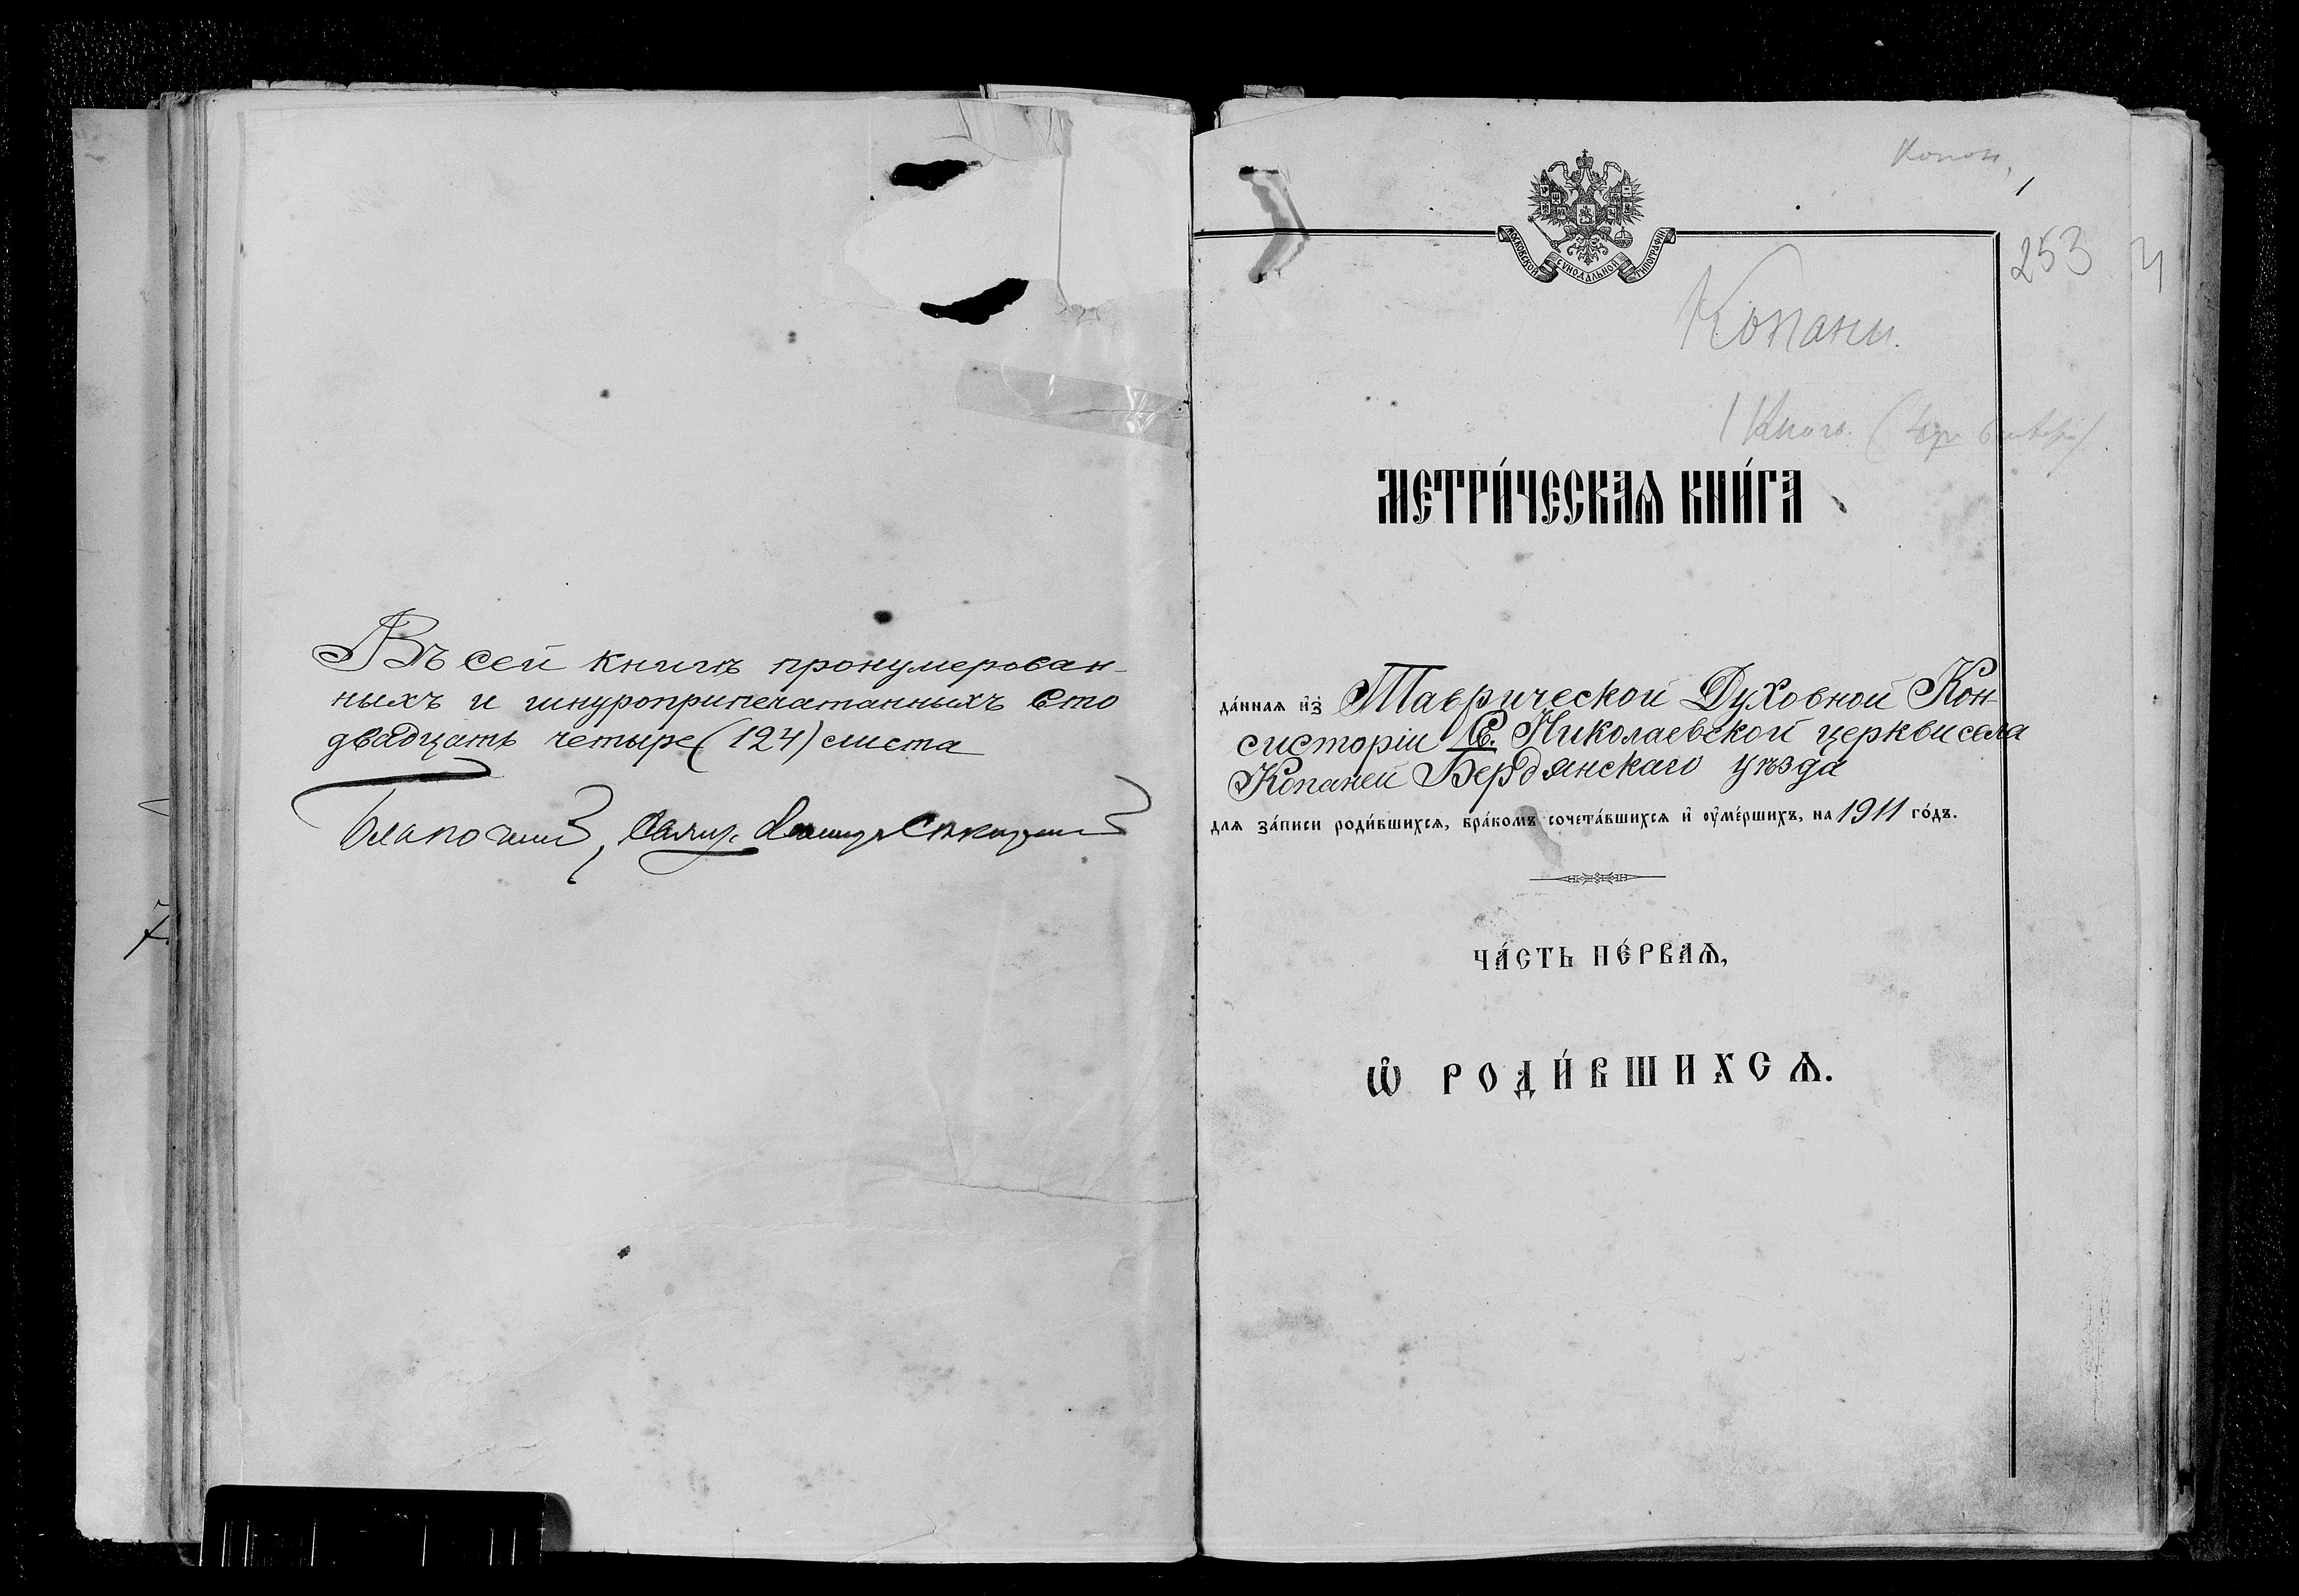 Въ сей книгѣ пронумерован-
ныхъ и шнуроприпечатанныхъ сто
двадцать четыре (124) листа
Благочинн
Копан
1
МОСКОВСКОЙ СѴНОДАЛЬНОЙ ТИПОГРАФІИ
253
Копани.
1 Книга.
МЕТРИ́ЧЕСКАѦ КНИ́ГА
да́ннаѧ и҆з̾ Таврической Духовной Кон-
систоріи Св. Николаевской церкви села
Копаней Бердянскаго уѣзда
длѧ за́писи роди́вшихсѧ, бра́комъ сочета́вшихсѧ и҆ оу҆ме́ршихъ, на 1911 го́дъ.
ЧА́СТЬ ПЕ́РВАѦ,
Ѡ҆ РОДИ́ВШИХСѦ.
7.